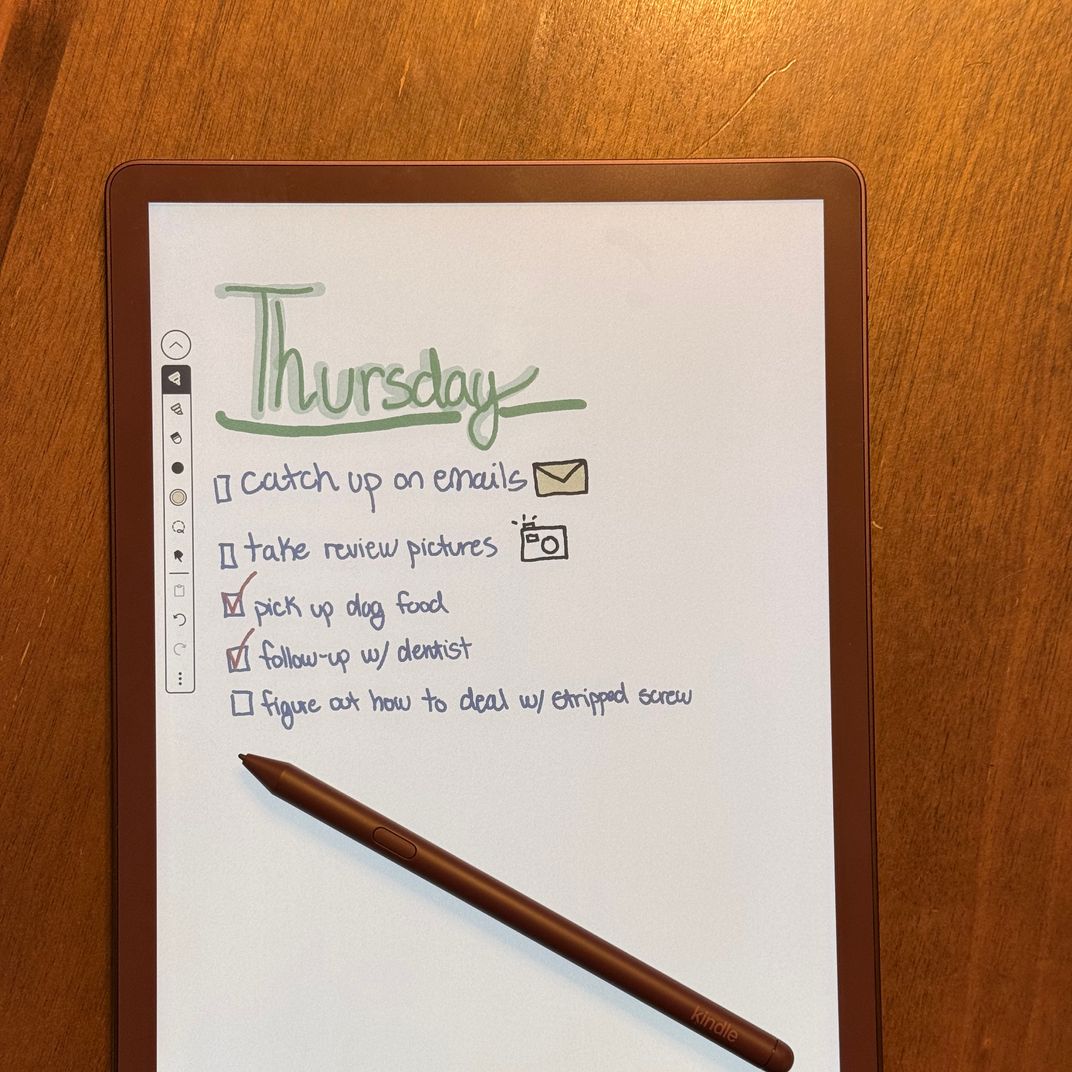 Thursday
catch up on emails
take review pictures
pick up dog food
follow-up w/ dentist
figure out how to deal w/ stripped screw
kindle